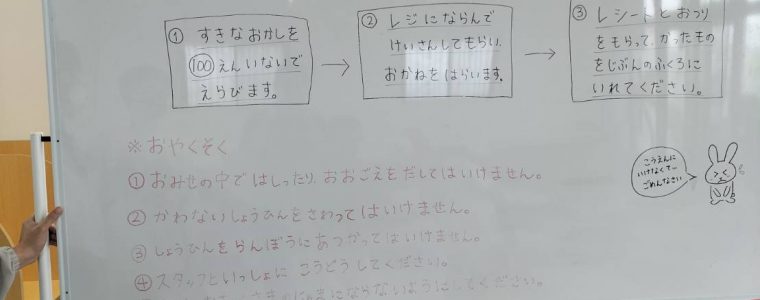 ① すきなおかしを
100えんいないで
えらびます。
② レジにならんで
けいさんしてもらい、
おかねをはらいます。
③ レシートとおつり
をもらって、かったもの
をじぶんのふくろに
いれてください。
※おやくそく
① おみせの中で はしったり、おおごえをだしてはいけません。
② かわないしょうひんをさわってはいけません。
③ しょうひんをらんぼうにあつかってはいけません。
④ スタッフといっしょに こうどうしてください。
じゃまにならないようにしてください。
こうえんに
いけなくてー
ごめんなさい